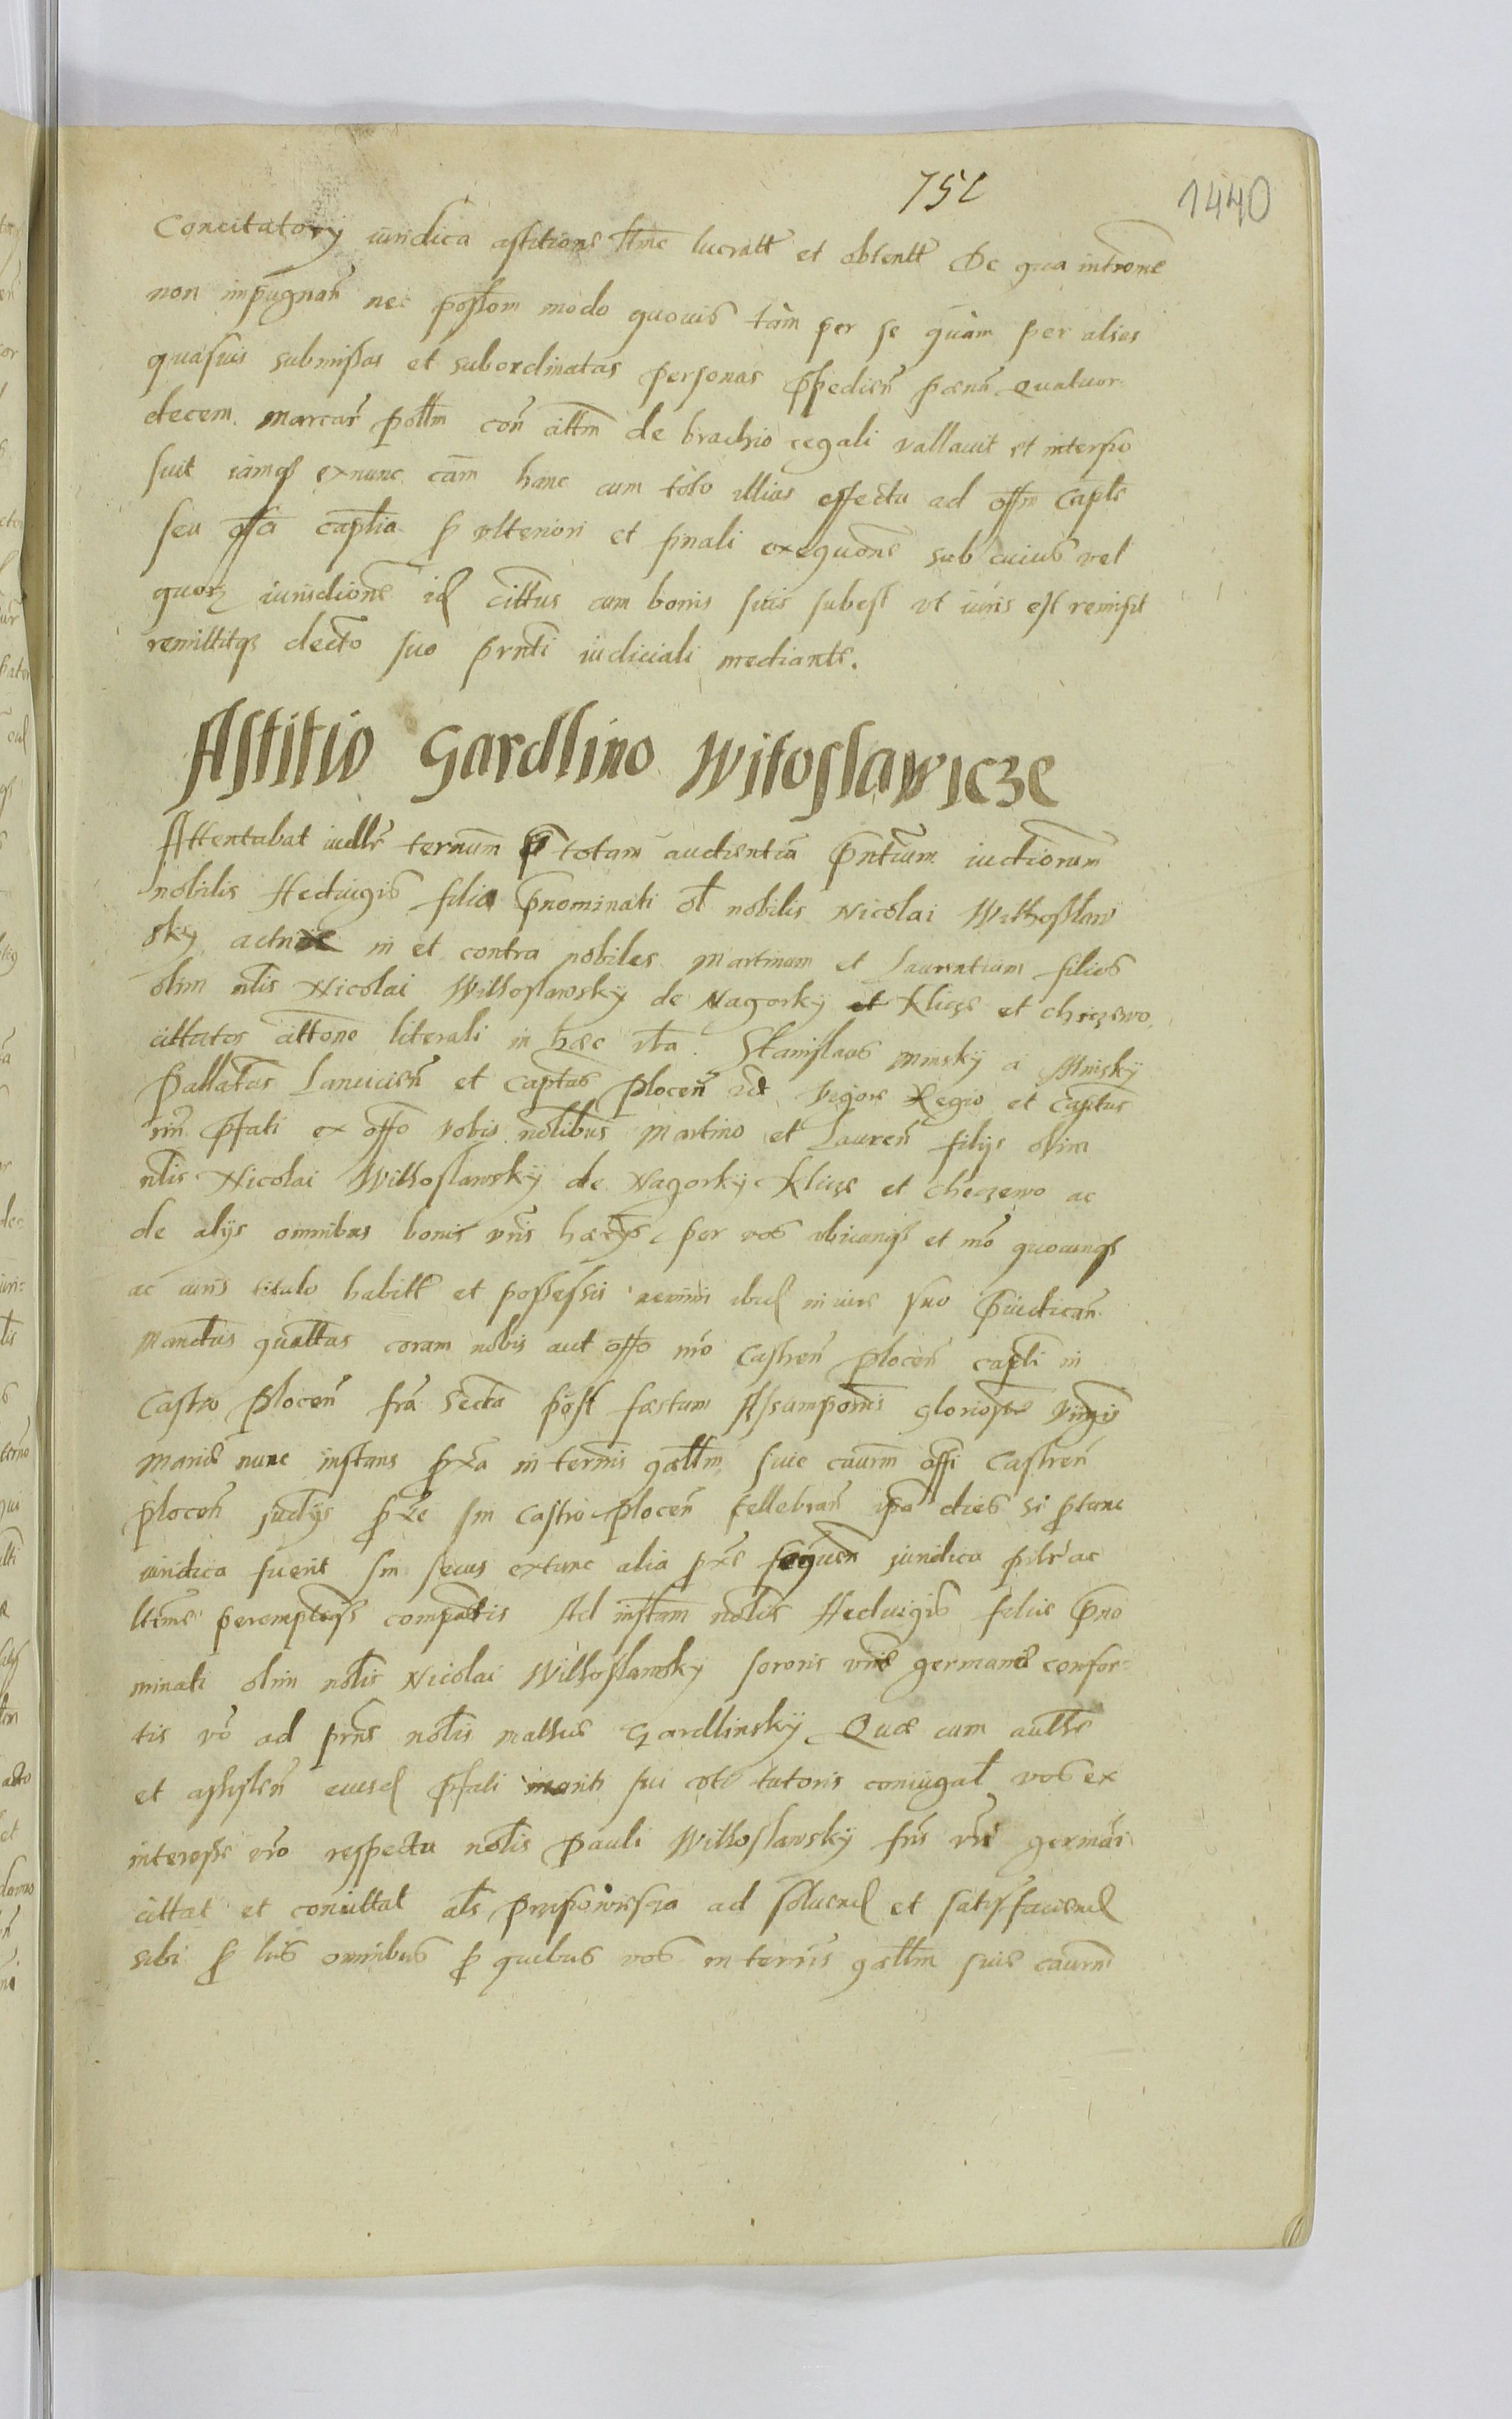 752
1440
Concitatory iuridica astitione ltime lucratt et obtentt De qua intromne
non impugnan nec postom modo quouis tam per se quàm per alias
quasuis submissas et subordinatas personas ppedien pœna Quatuor
decem marcar pottm con cittm de brachio regali vallauit et interpo
suit iamqz exnunc cam hanc cum toto illius effectu ad offm Captle
seu offa captlia p vlteriori et finali exequone sub cuius vel
quorz iurisdicione id cittus cum bonis suis subest vt iuris est remisit
remittitqz decto suo prnti iudiciali mediante.
Astitio Gardlino Witoslawicze
Attentabat iudlr ternum p totam audientia pntium iudiorum
nobilis Heduigis filia pnominati ol nobilis Nicolai Withoslaw
sky actrix in et contra nobiles Martinum et Laurentium filios
olim nlis Nicolai Withoslawsky de Nagorky et Klicze et chczewo
cittatos cittone literali in hæc vba. Stanislaus Minsky a Minsky
Pallatus Lancicien et Captus Plocen vigore Regio et Captus
sui pfati ex offo vobis nolibus Martino et Lauren filijs olim
nlis Nicolai Withoslawsky de Nagorky Klicze et checzewo ac
de alijs omnibus bonis vris hærijs per vos vbicunqz et mo quocunqz
ac iuris titulo habitt et possessis nemini ibid in iure suo piudican
Manctus quattus coram nobis aut offo nro Castren Plocen captli in
Castro Plocen fra Secta post fæstum Assumponis gloriosæ Virgis
Mariæ nunc instans pxa in ternis qœttm siue caurm offi Castren
Plocen judijs pxe sm Castro Plocen cellebran ipa dies si ptunc
iuridica fuerit sin secus extunc alia pxe sequen juridica pilr ac
ltime peremptorie compatis Ad instam nolis Heduigis filiæ pno
minati olim nolis Nicolai Withoslawsky sororis vræ germanæ confor-
tis vo ad prns nolis Mathiæ Gardlinsky Quæ cum autte
et assisten eiusd pfati mariti sui vti tutoris coniugal vos ex
interesse vro respectu nolis Pauli Withoslawsky fris vri germani
cittat et concittat als przipowiesza ad soluend et satisfaciend
sibi p his omnibus p quibus vos in ternis qœttm siue caurm